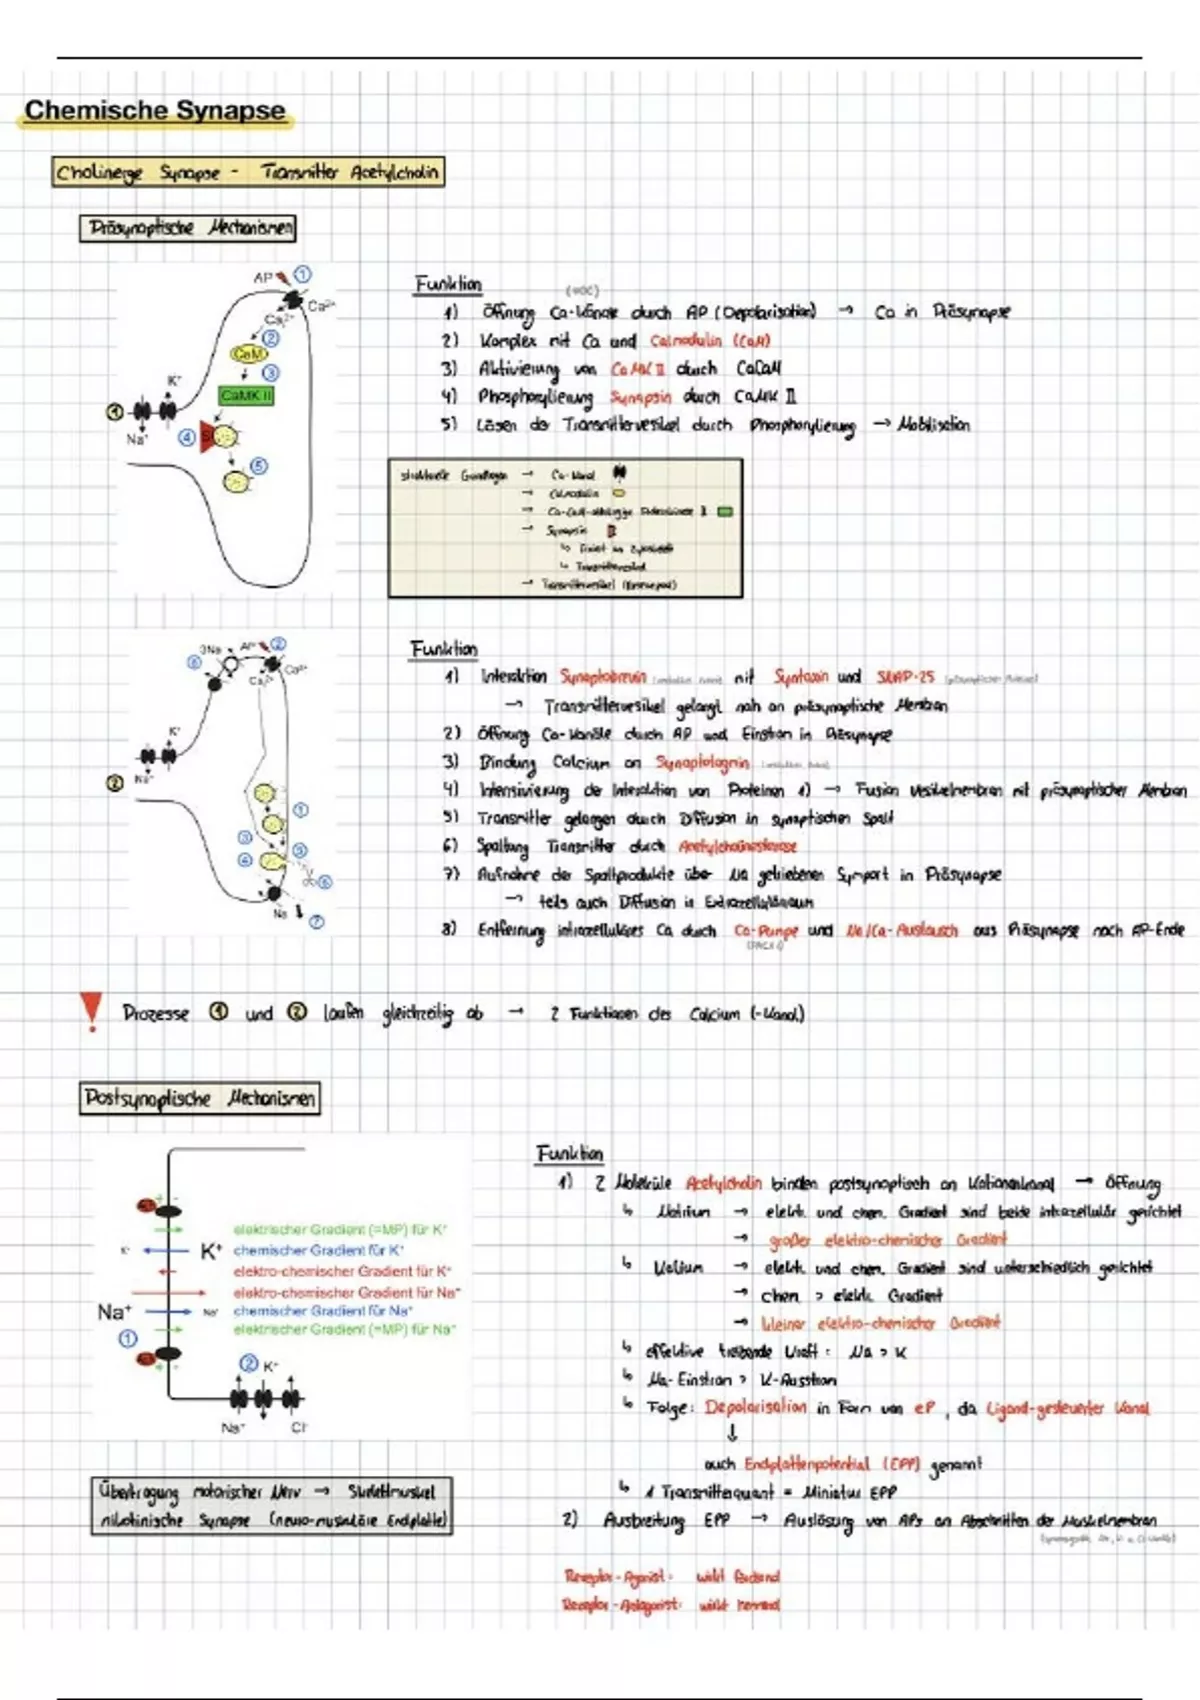 Chemische Synapse
Cholinerge Synapse - Transmitter Acetylcholin
Präsynaptische Mechanismen
AP 1
Ca²⁺
Ca²⁺
2
CaM
3
K⁺
CaMK II
1
Na⁺
4
5
Funktion
(VOC)
1) Öffnung Ca-Kanäle durch AP (Depolarisation) → Ca in Präsynapse
2) Komplex mit Ca und Calmodulin (CaM)
3) Aktivierung von CaMK II durch CaCaM
4) Phosphorylierung Synapsin durch CaMK II
5) Lösen der Transmittervesikel durch Phosphorylierung → Mobilisation
strukturelle Grundlagen → Ca-Kanal
→ Calmodulin
→ Ca-CaM-abhängige Proteinkinase II
→ Synapsin
↳ Fixiert an Zytoskelett
↳ Transmittervesikel
→ Transmittervesikel
3Na AP 2
8
Ca²⁺
Ca²⁺
K⁺
Na⁺
2
1
3
4
5
6
Na
7
Funktion
1) Interaktion Synaptobrevin mit Syntaxin und SNAP-25
→ Transmittervesikel gelangt nah an präsynaptische Membran
2) Öffnung Ca-Kanäle durch AP und Einstrom in Präsynapse
3) Bindung Calcium an Synaptotagmin
4) Intensivierung der Interaktion von Proteinen 1) → Fusion Vesikelmembran mit präsynaptischer Membran
5) Transmitter gelangen durch Diffusion in synaptischen Spalt
6) Spaltung Transmitter durch Acetylcholinesterase
7) Aufnahme der Spaltprodukte über Na getriebenen Symport in Präsynapse
→ teils auch Diffusion in Extrazellulärraum
8) Entfernung intrazelluläres Ca durch Ca-Pumpe und Na/Ca-Austausch aus Präsynapse nach AP-Ende
(PMCA)
! Prozesse 1 und 2 laufen gleichzeitig ab → 2 Funktionen des Calcium (-Kanal)
Postsynaptische Mechanismen
elektrischer Gradient (=MP) für K⁺
K⁺ K⁺ chemischer Gradient für K⁺
elektro-chemischer Gradient für K⁺
elektro-chemischer Gradient für Na⁺
Na⁺ Na⁺ chemischer Gradient für Na⁺
elektrischer Gradient (=MP) für Na⁺
1
2 K⁺
Na⁺ Cl⁻
Übertragung motorischer Nerv → Skelettmuskel
nikotinische Synapse (neuro-muskuläre Endplatte)
Funktion
1) 2 Moleküle Acetylcholin binden postsynaptisch an Kationenkanal → Öffnung
↳ Natrium → elektr. und chem. Gradient sind beide intrazellulär gerichtet
→ großer elektro-chemischer Gradient
↳ Kalium → elektr. und chem. Gradient sind unterschiedlich gerichtet
→ chem > elektr. Gradient
→ kleiner elektro-chemischer Gradient
↳ effektive treibende Kraft: Na > K
↳ Na-Einstrom > K-Ausstrom
↳ Folge: Depolarisation in Form von eP, da Ligand-gesteuerter Kanal
↓
auch Endplattenpotential (EPP) genannt
↳ 1 Transmitterquant = Miniatur EPP
2) Ausbreitung EPP → Auslösung von APs an Abschnitten der Muskelmembran
Rezeptor-Agonist: wirkt fördernd
Rezeptor-Antagonist: wirkt hemmend